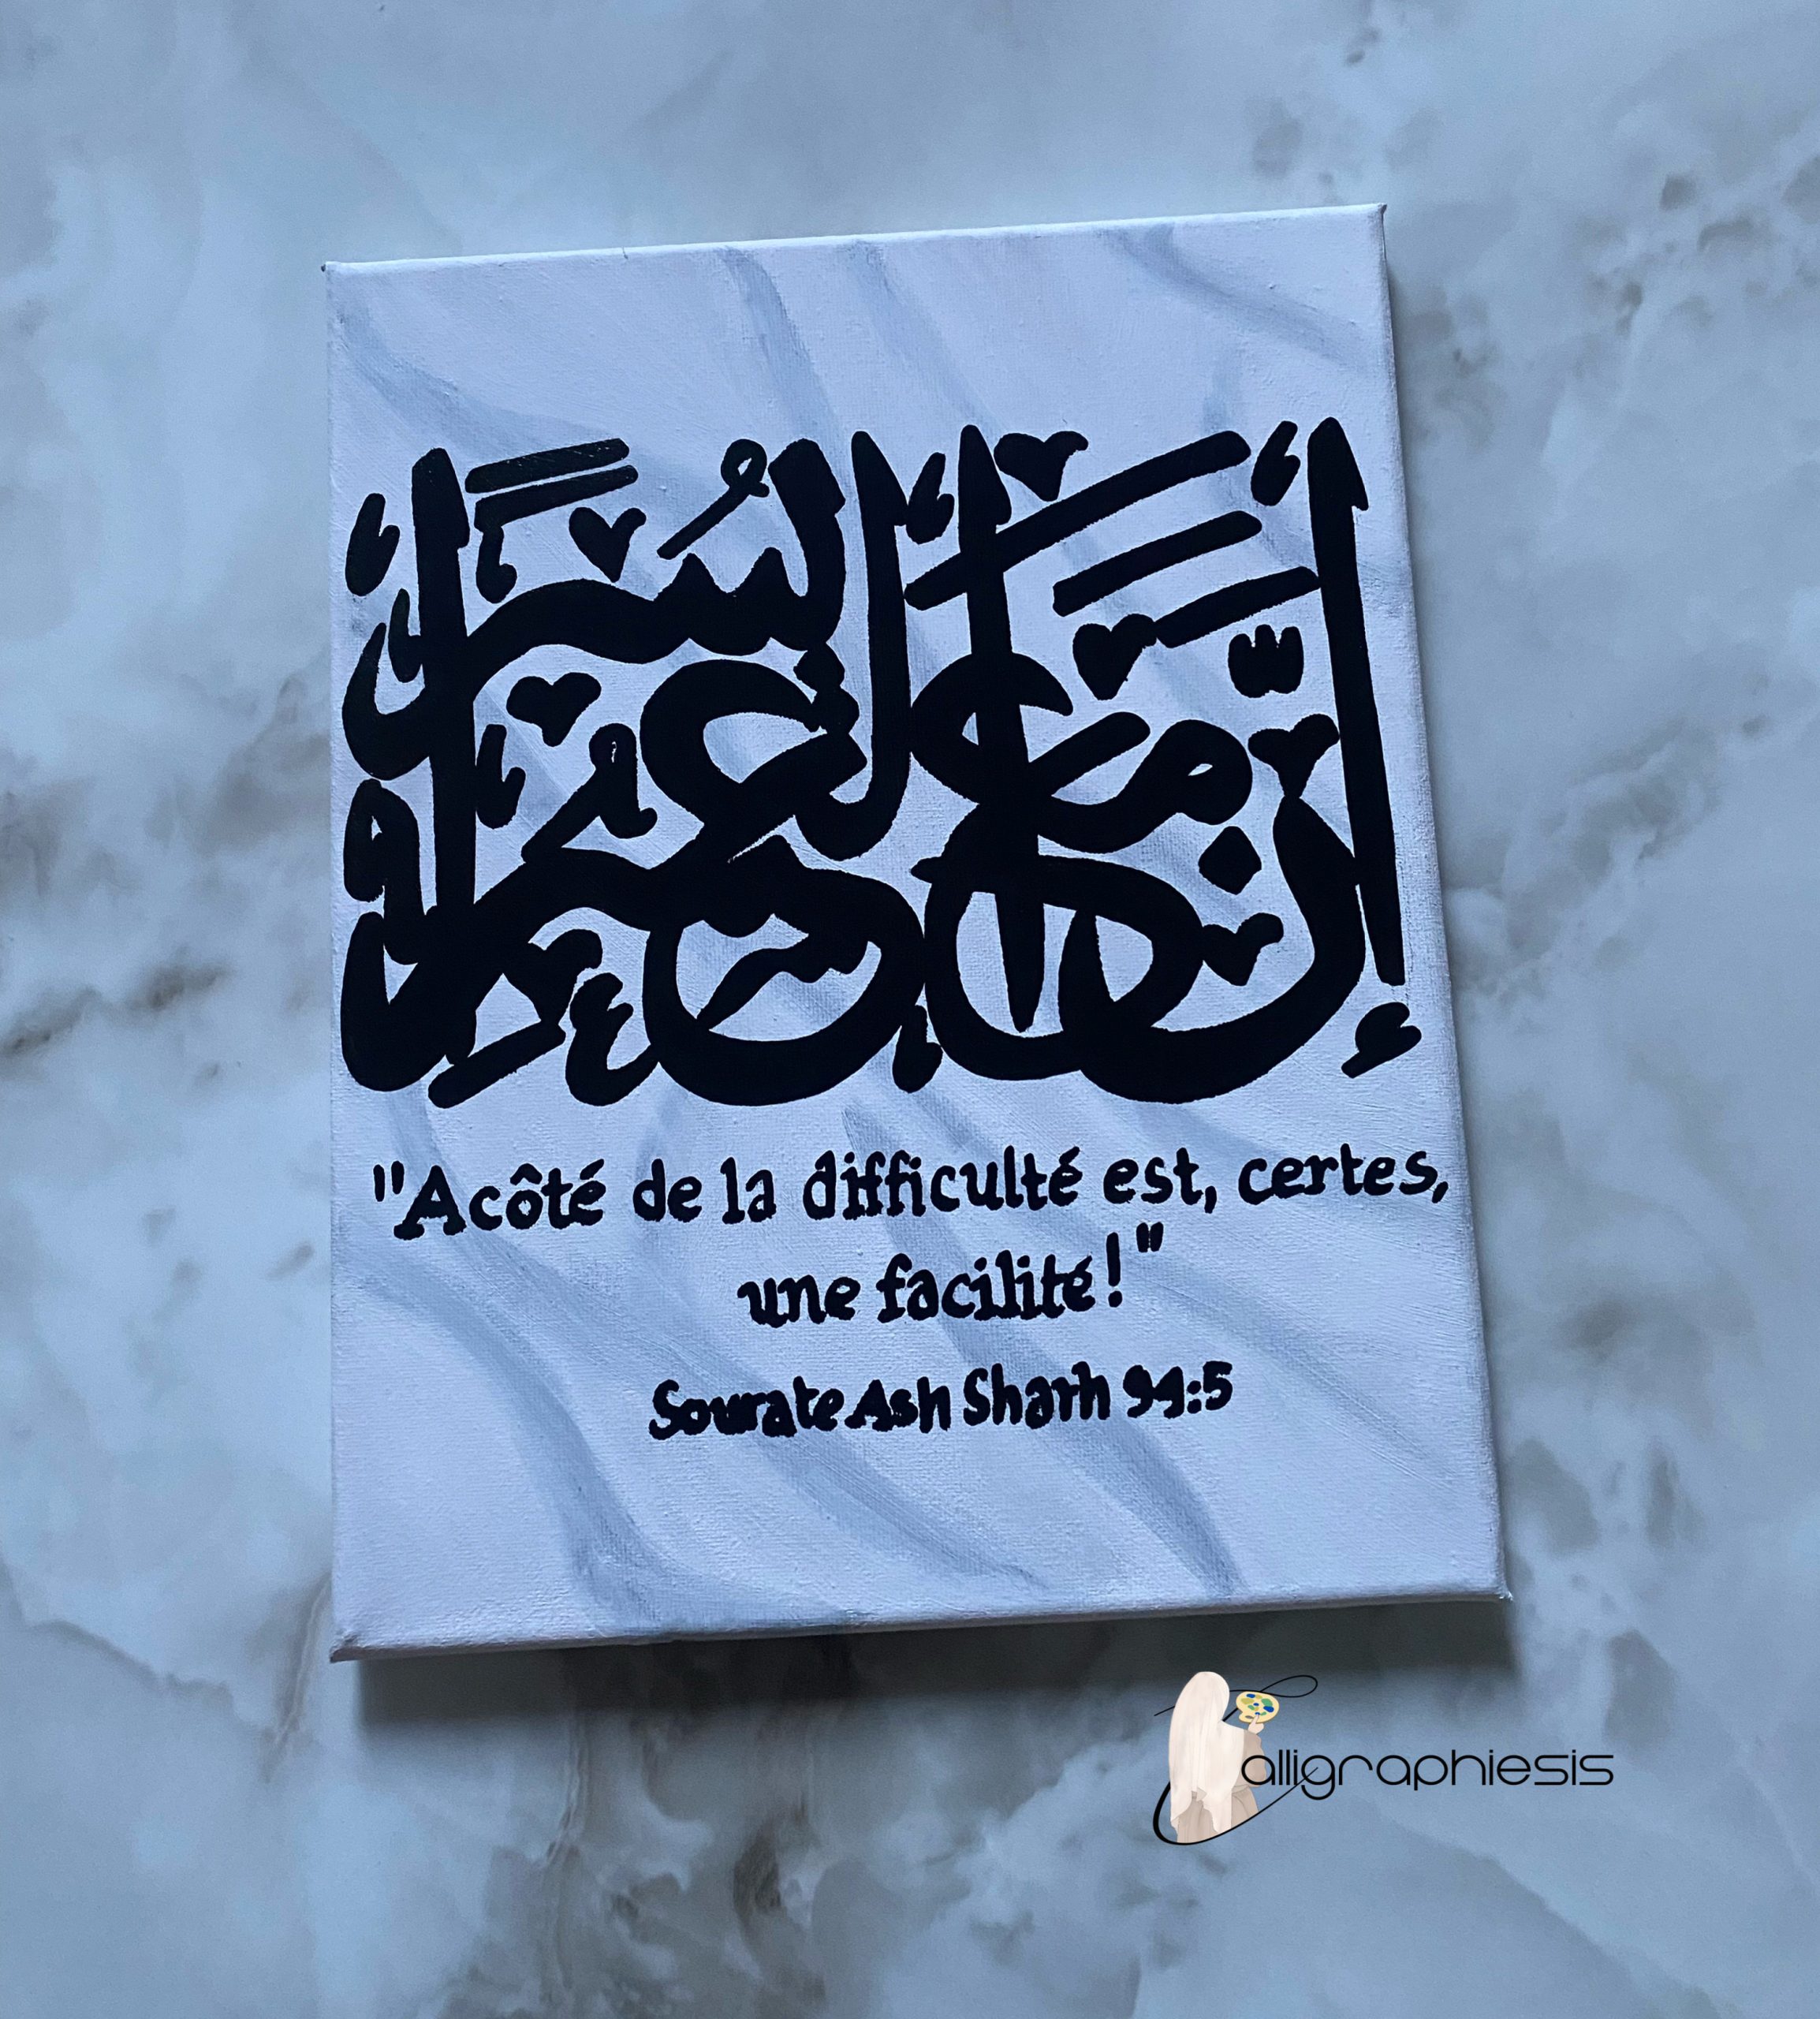 إن مع العسر يسرا
"A côté de la difficulté est, certes,
une facilité!"
Sourate Ash Sharh 94:5
Calligraphiesis